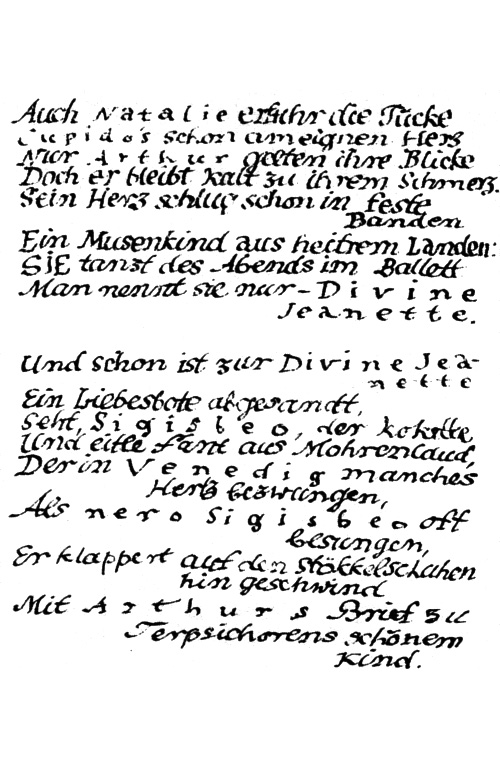 Auch Natalie erfuhr die Tücke
Cupido's schon am eignen Herz
Nur Arthur gelten ihre Blicke
Doch er bleibt kalt zu ihrem Schmerz.
Sein Herz schlug schon in feste
Banden
Ein Musenkind aus heitrem Landen:
SIE tanzt des Abends im Ballett
Man nennt sie nur - Divine
Jeanette.
Und schon ist zur Divine Jea-
nette
Ein Liebesbote abgesandt,
Seht, Sigisbeo, der kokette,
Und eitle Fant aus Mohrenland,
Der in Venedig manches
Hertz bezwungen,
Als nero Sigisbeo oft
besungen,
Er klappert auf den Stökkelschuhen
hin geschwind
Mit Arthurs Brief zu
Terpsichorens schönem
Kind.